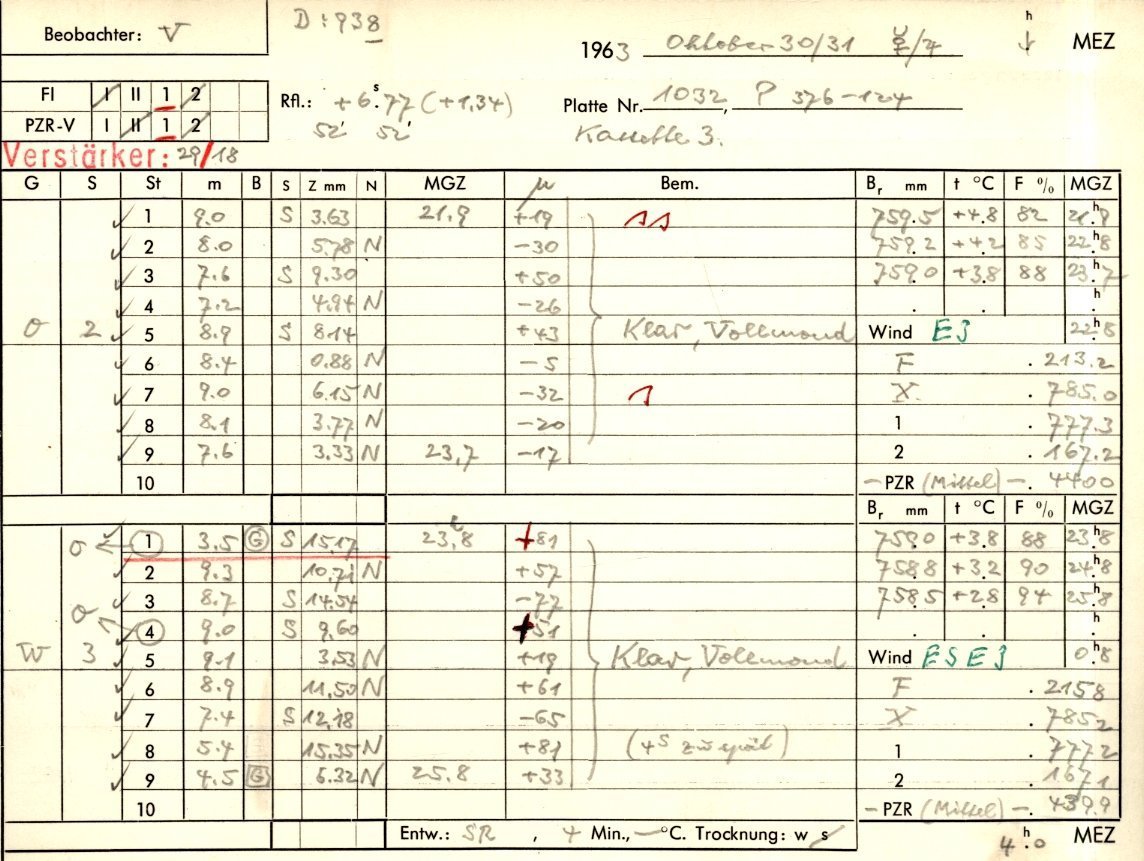 Beobachter: V
D: 938
1963 Oktober 30/31
h
MEZ
FI I II 1 2
PZR-V I II 1 2
Rfl.: +6.ˢ77 (+1,34)
Platte Nr. 1032, P 376-124
Kassette 3.
Verstärker: 29/18
G S St m B S Z mm N MGZ μ Bem. Bᵣ mm t °C F % MGZ
1 9.0 S 3.63 21.9 +19 759.5 +4.8 82 21.ʰ9
2 8.0 5.78 N -30 759.2 +4.2 85 22.ʰ8
3 7.6 S 9.30 +50 759.0 +3.8 88 23.ʰ7
4 7.2 4.94 N -26 . . .ʰ
σ 2 5 8.9 S 8.14 +43 Klar, Vollmond Wind E3 22.ʰ8
6 8.4 0.88 N -5 F . 213.2
7 9.0 6.15 N -32 X . 785.0
8 8.1 3.77 N -20 1 . 777.3
9 7.6 3.33 N 23,7 -17 2 . 167.2
10 -PZR (Mittel) -. 4400
Bᵣ mm t °C F % MGZ
σ 1 3.5 G S 15.17 23.ʰ8 +81 759.0 +3.8 88 23.ʰ8
2 9.3 10.71 N +57 758.8 +3.2 90 24.ʰ8
3 8.7 S 14.54 -77 758.5 +2.8 94 25.ʰ8
σ 4 9.0 S 9.60 +51 . . .ʰ
W 3 5 9.1 3.53 N +19 Klar, Vollmond Wind ESE3 0.ʰ8
6 8.9 11.50 N +61 F . 2158
7 7.4 S 12.18 -65 X . 785.2
8 5.4 15.35 N +81 (4ˢ zu spät) 1 . 777.2
9 4.5 G 6.32 N 25.8 +33 2 . 167.1
10 -PZR (Mittel) -. 439.9
Entw.: SR , 4 Min., — °C. Trocknung: w s
4.ʰ0 MEZ